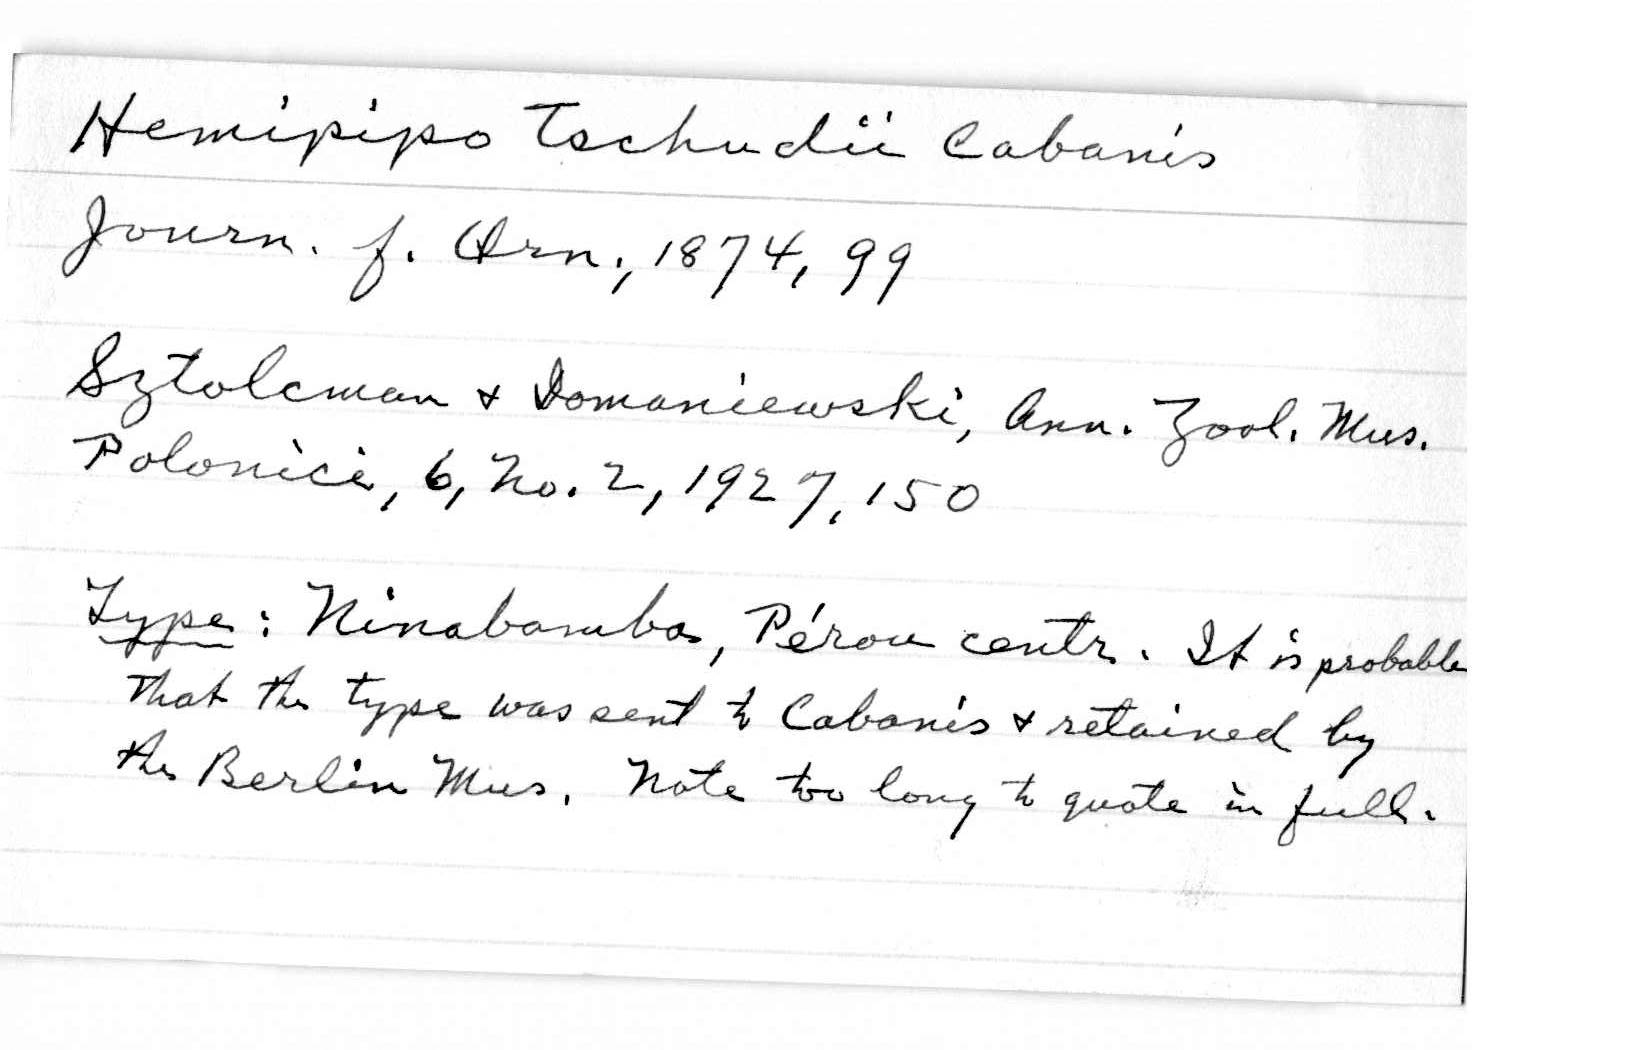 Hemipipo Tschudii Cabanis
Journ. f. Orn., 1874, 99
Sztolcman & Domaniewski, Ann. Zool. Mus.
Polonici, 6, No. 2, 1927, 150
Type: Ninabamba, Pérou centr. It is probable
that the type was sent to Cabanis & retained by
the Berlin Mus. Note too long to quote in full.